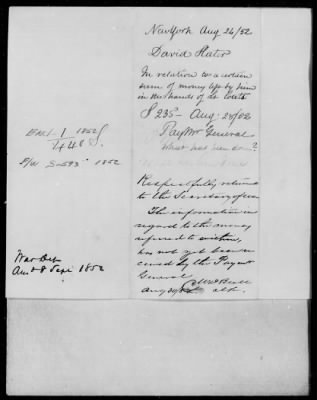 New York Aug 24/52
David
In relation to a certain
sum of money left by him
in the hands of
$ 235 - Aug: 28/52
Paymr General
What has been ?
Respectfully returned
to the Secretary of War
The information in
regard to the money
referred to within,
has not yet been re
ceived by the Paymr
General
Aug
1852
S-593 1852
War Dept
Ansd 8 Sept 1852